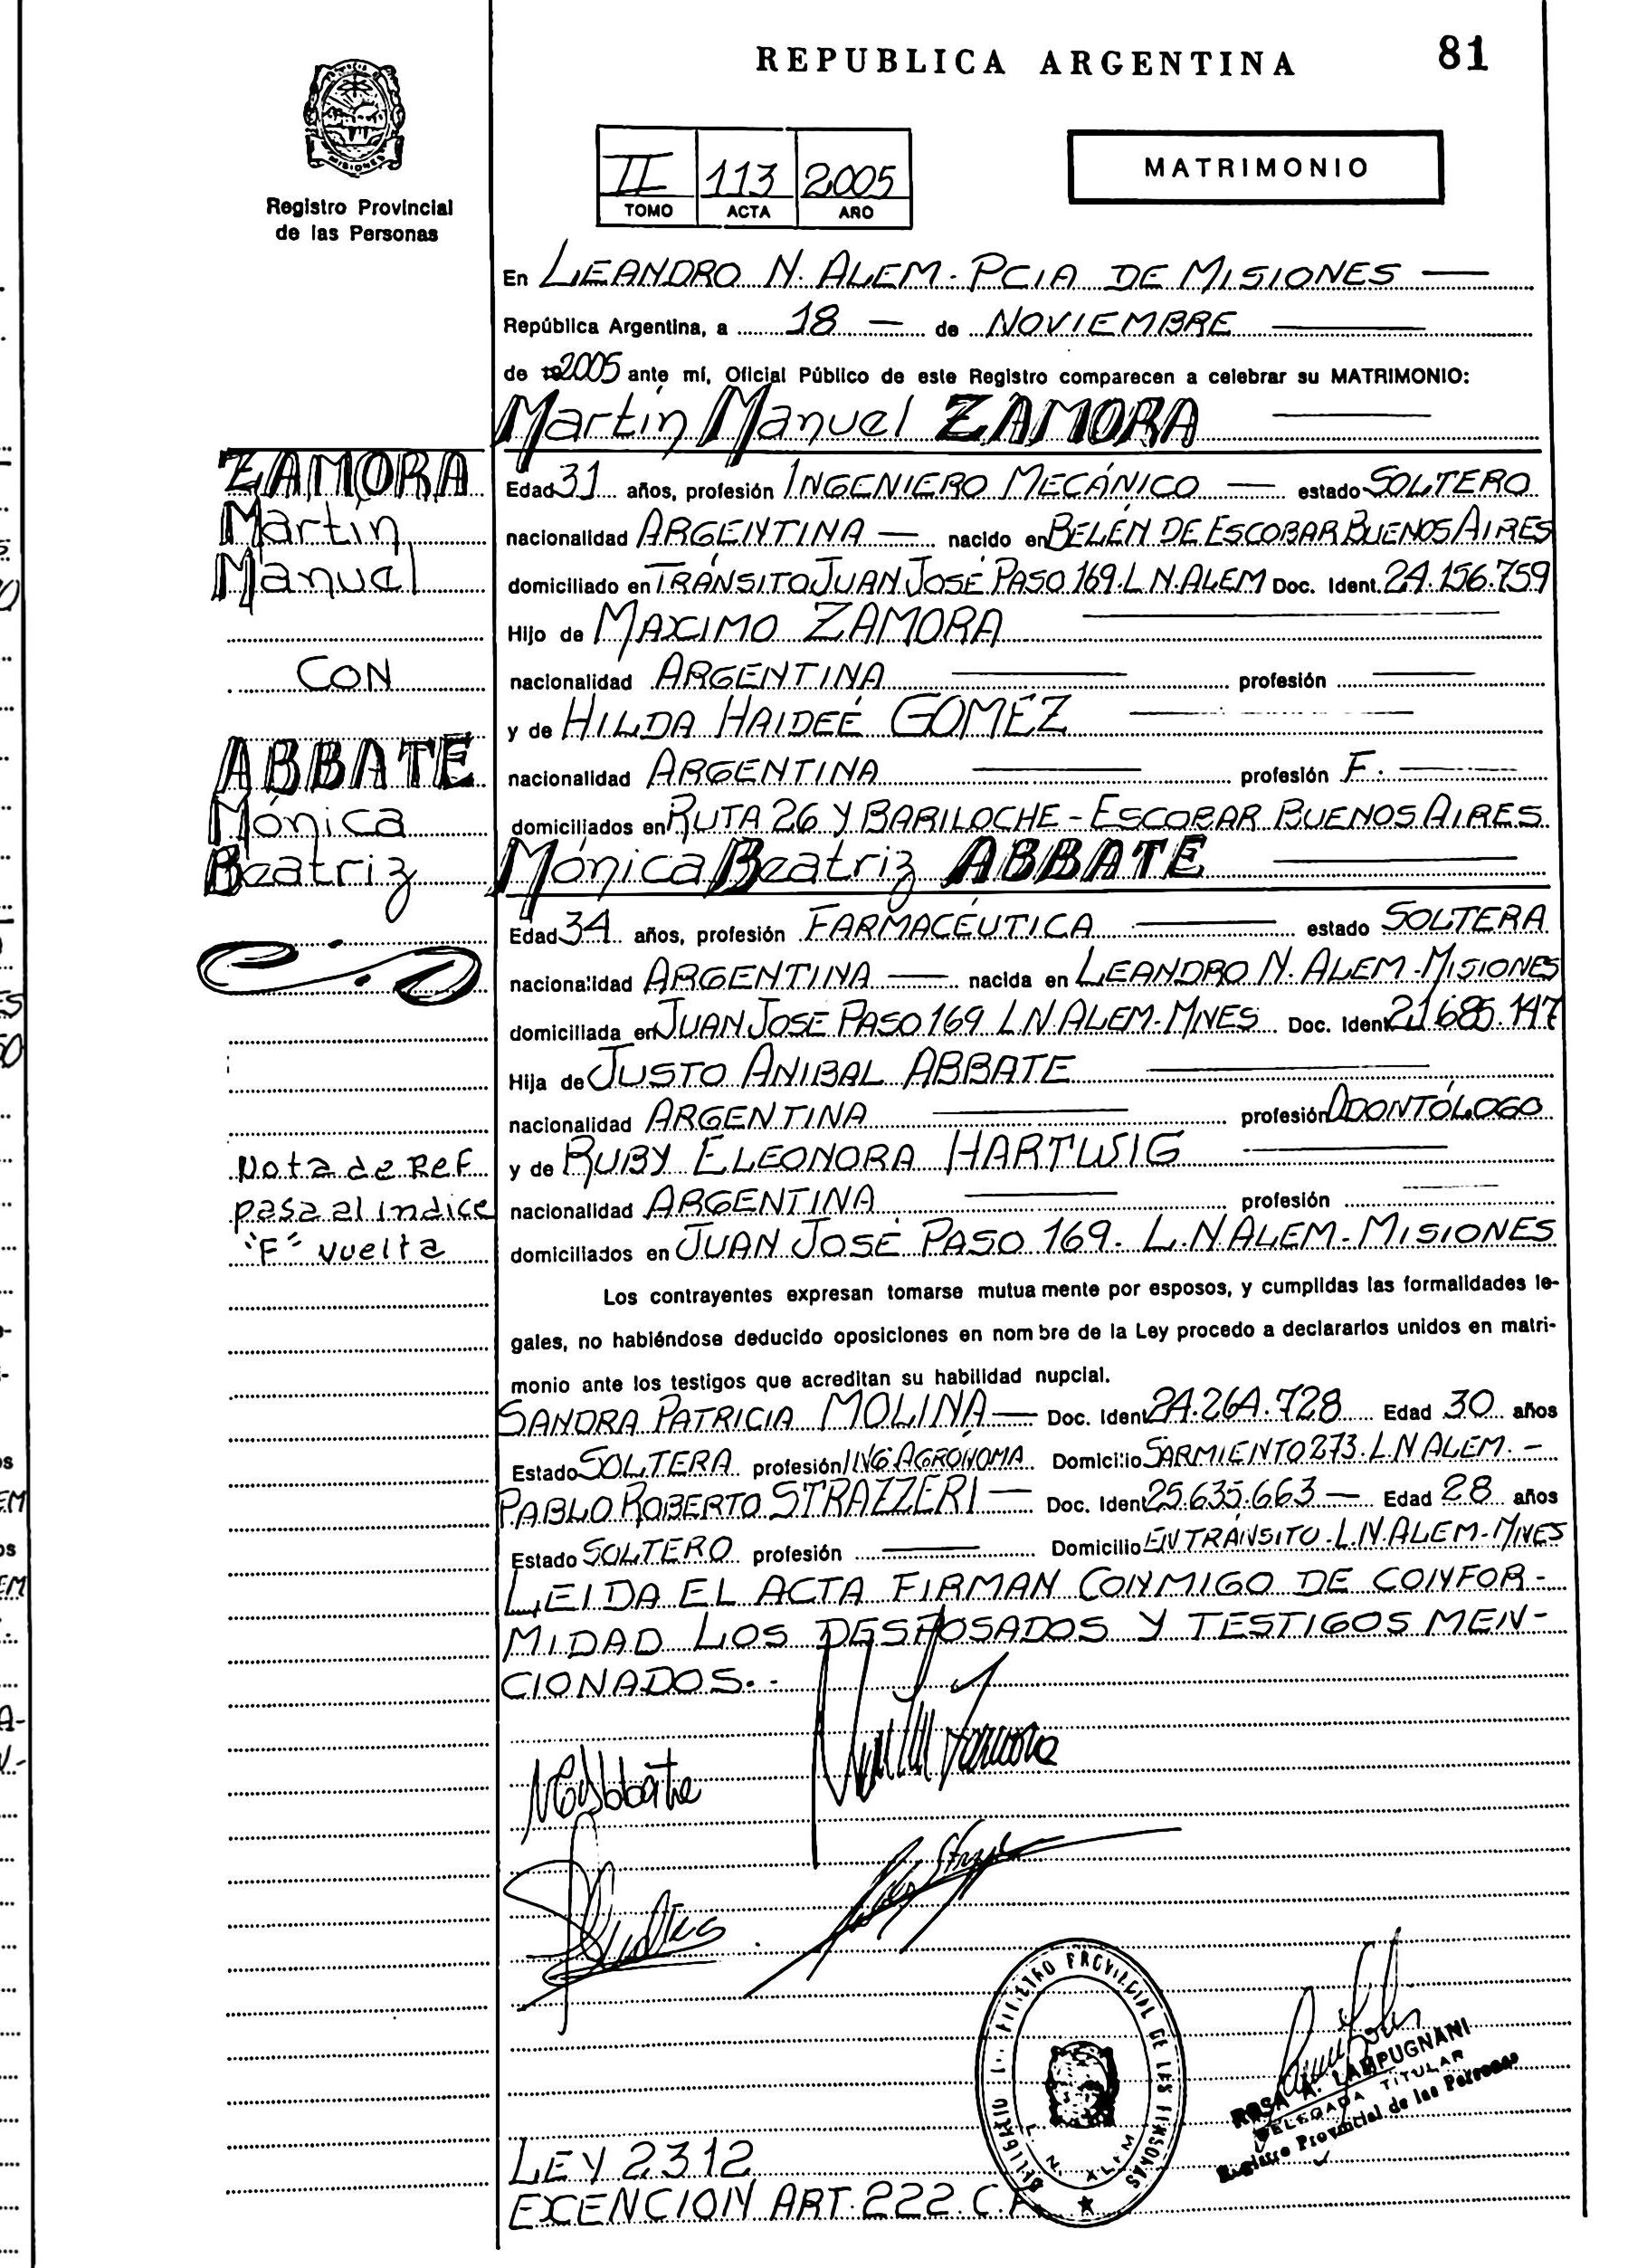 REPUBLICA ARGENTINA 81
MISIONES
Registro Provincial
de las Personas
II 113 2005
TOMO ACTA AÑO
MATRIMONIO
En LEANDRO N. ALEM. PCIA DE MISIONES
República Argentina, a 18 de NOVIEMBRE
de 2005 ante mí, Oficial Público de este Registro comparecen a celebrar su MATRIMONIO:
Martín Manuel ZAMORA
ZAMORA
Martín
Manuel
CON
ABBATE
Mónica
Beatriz
Edad 31 años, profesión INGENIERO MECÁNICO estado SOLTERO
nacionalidad ARGENTINA nacido en BELÉN DE ESCOBAR BUENOS AIRES
domiciliado en TRÁNSITO JUAN JOSÉ PASO 169. L.N. ALEM Doc. Ident. 24.156.759
Hijo de MAXIMO ZAMORA
nacionalidad ARGENTINA profesión
y de HILDA HAIDEÉ GOMÉZ
nacionalidad ARGENTINA profesión F.
domiciliados en RUTA 26 Y BARILOCHE - ESCOBAR BUENOS AIRES
Mónica Beatriz ABBATE
Edad 34 años, profesión FARMACÉUTICA estado SOLTERA
nacionalidad ARGENTINA nacida en LEANDRO N. ALEM - MISIONES
domiciliada en JUAN JOSÉ PASO 169 L N ALEM - MNES Doc. Ident. 21.685.147
Hija de JUSTO ANIBAL ABBATE
nacionalidad ARGENTINA profesión ODONTÓLOGO
y de RUBY ELEONORA HARTWIG
nacionalidad ARGENTINA profesión
domiciliados en JUAN JOSÉ PASO 169. L.N ALEM - MISIONES
Nota de Ref
pasa al indice
"F" vuelta
Los contrayentes expresan tomarse mutuamente por esposos, y cumplidas las formalidades le-
gales, no habiéndose deducido oposiciones en nombre de la Ley procedo a declararlos unidos en matri-
monio ante los testigos que acreditan su habilidad nupcial.
SANDRA PATRICIA MOLINA Doc. Ident 24.264.728 Edad 30 años
Estado SOLTERA profesión ING AGRÓNOMA Domicilio SARMIENTO 273. L N ALEM. -
PABLO ROBERTO STRAZZERI Doc. Ident 25.635.663 Edad 28 años
Estado SOLTERO profesión Domicilio EN TRÁNSITO - L.N. ALEM - MNES
LEIDA EL ACTA FIRMAN CONMIGO DE CONFOR-
MIDAD LOS DESPOSADOS Y TESTIGOS MEN-
CIONADOS. -
MBAbbate
Zamora
REGISTRO PROVINCIAL DE LAS PERSONAS
L. N. ALEM
ROSA A. LAMPUGNANI
DELEGADA TITULAR
Registro Provincial de las Personas
LEY 2312
EXENCION ART. 222. C.F.